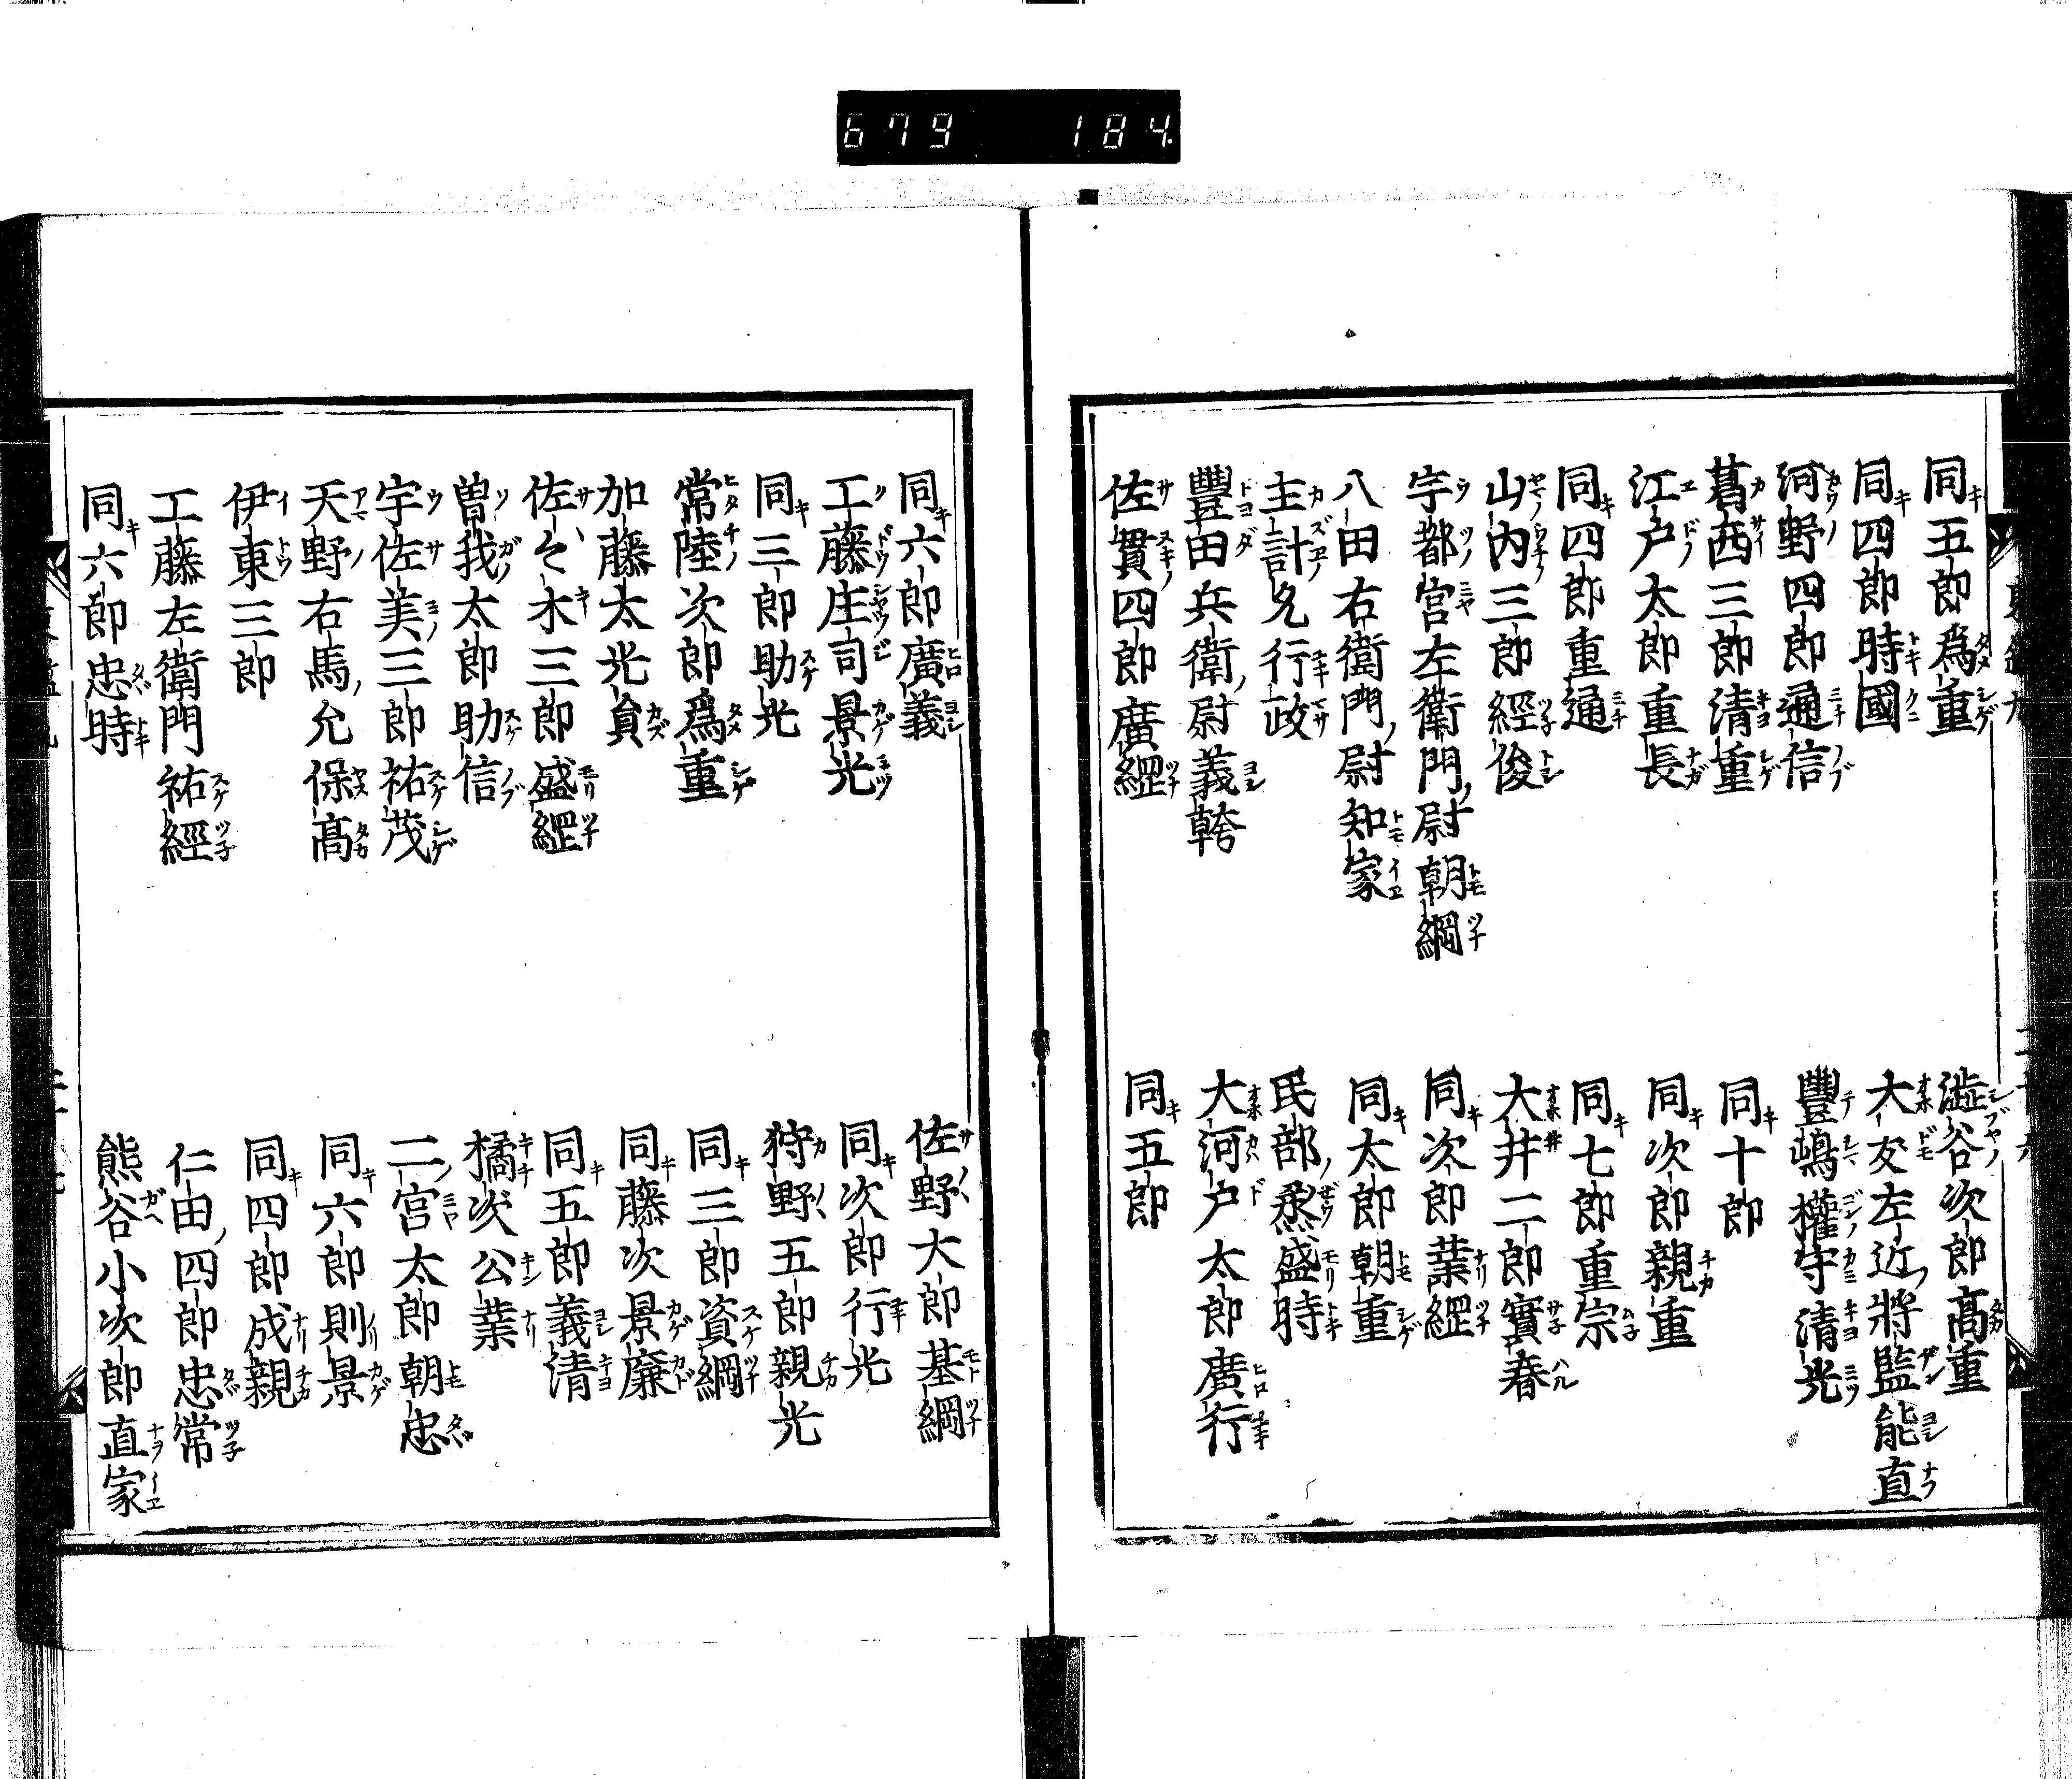 679 184
同五郎爲重 澁谷次郎高重
同四郎時國 大友左近將監能直
河野四郎通信 豐嶋權守清光
葛西三郎清重 同十郎
江戸太郎重長 同次郎親重
同四郎重通 同七郎重宗
山内三郎經俊 大井二郎實春
宇都宮左衛門尉朝綱 同次郎業綱
八田右衛門尉知家 同太郎朝重
主計允行政 民部烝盛時
豐田兵衛尉義幹 大河戸太郎廣行
佐貫四郎廣綱 同五郎
同六郎廣義 佐野大郎基綱
工藤庄司景光 同次郎行光
同三郎助光 狩野五郎親光
常陸次郎爲重 同三郎資綱
加藤太光員 同藤次景廉
佐々木三郎盛綱 同五郎義清
曽我太郎助信 橘次公業
宇佐美三郎祐茂 二宮太郎朝忠
天野右馬允保高 同六郎則景
伊東三郎 同四郎成親
工藤左衛門祐經 仁由四郎忠常
同六郎忠時 熊谷小次郎直家